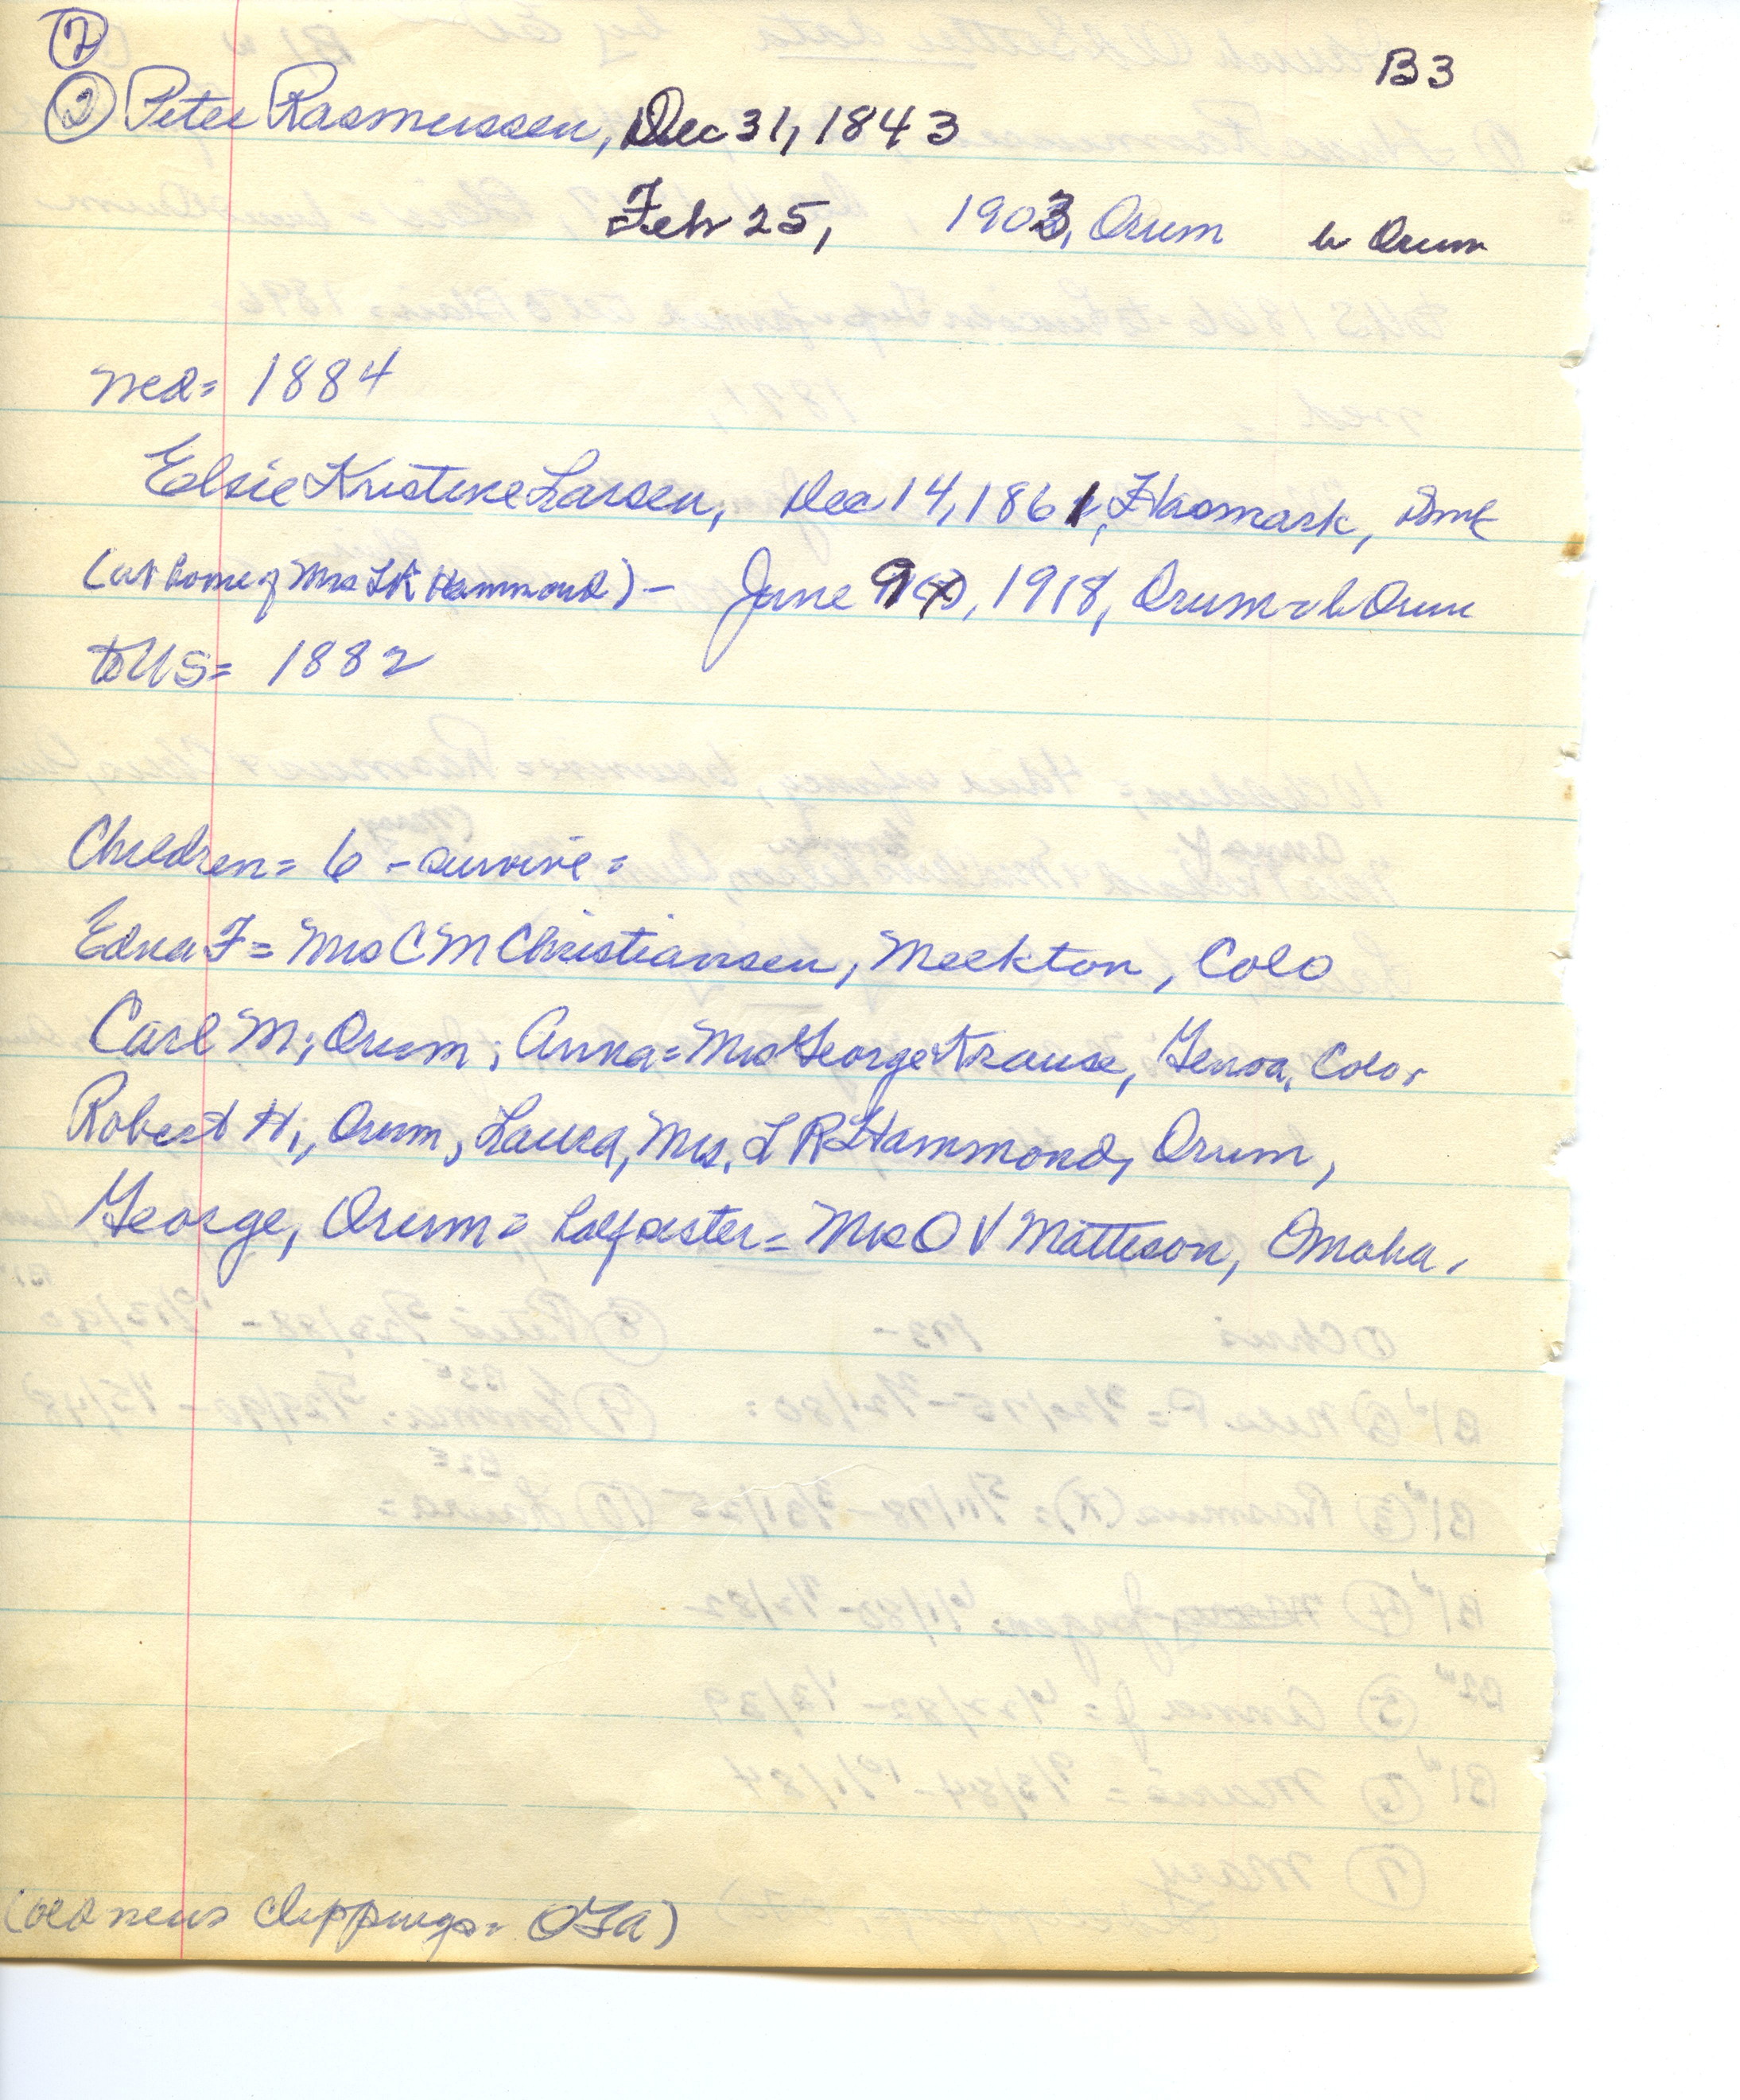 2
B3
2 Peter Rasmussen, Dec 31, 1843
Feb 25, 1903, Orum b Orum
med = 1884
Elsie Kristine Larsen, Dec 14, 1861, Hasmark, Dmk
(at home of Mrs L R Hammond) - June 9, 1918, Orum - b Orum
to US = 1882
Children = 6 - survive =
Edna F = Mrs C M Christiansen, Meekton, Colo
Carl M; Orum; Anna = Mrs George Krause, Genoa, Colo.
Robert H;, Orum, Laura, Mrs. L R Hammond, Orum,
George, Orum = halfsister = Mrs O V Matteson, Omaha.
(old news clippings =